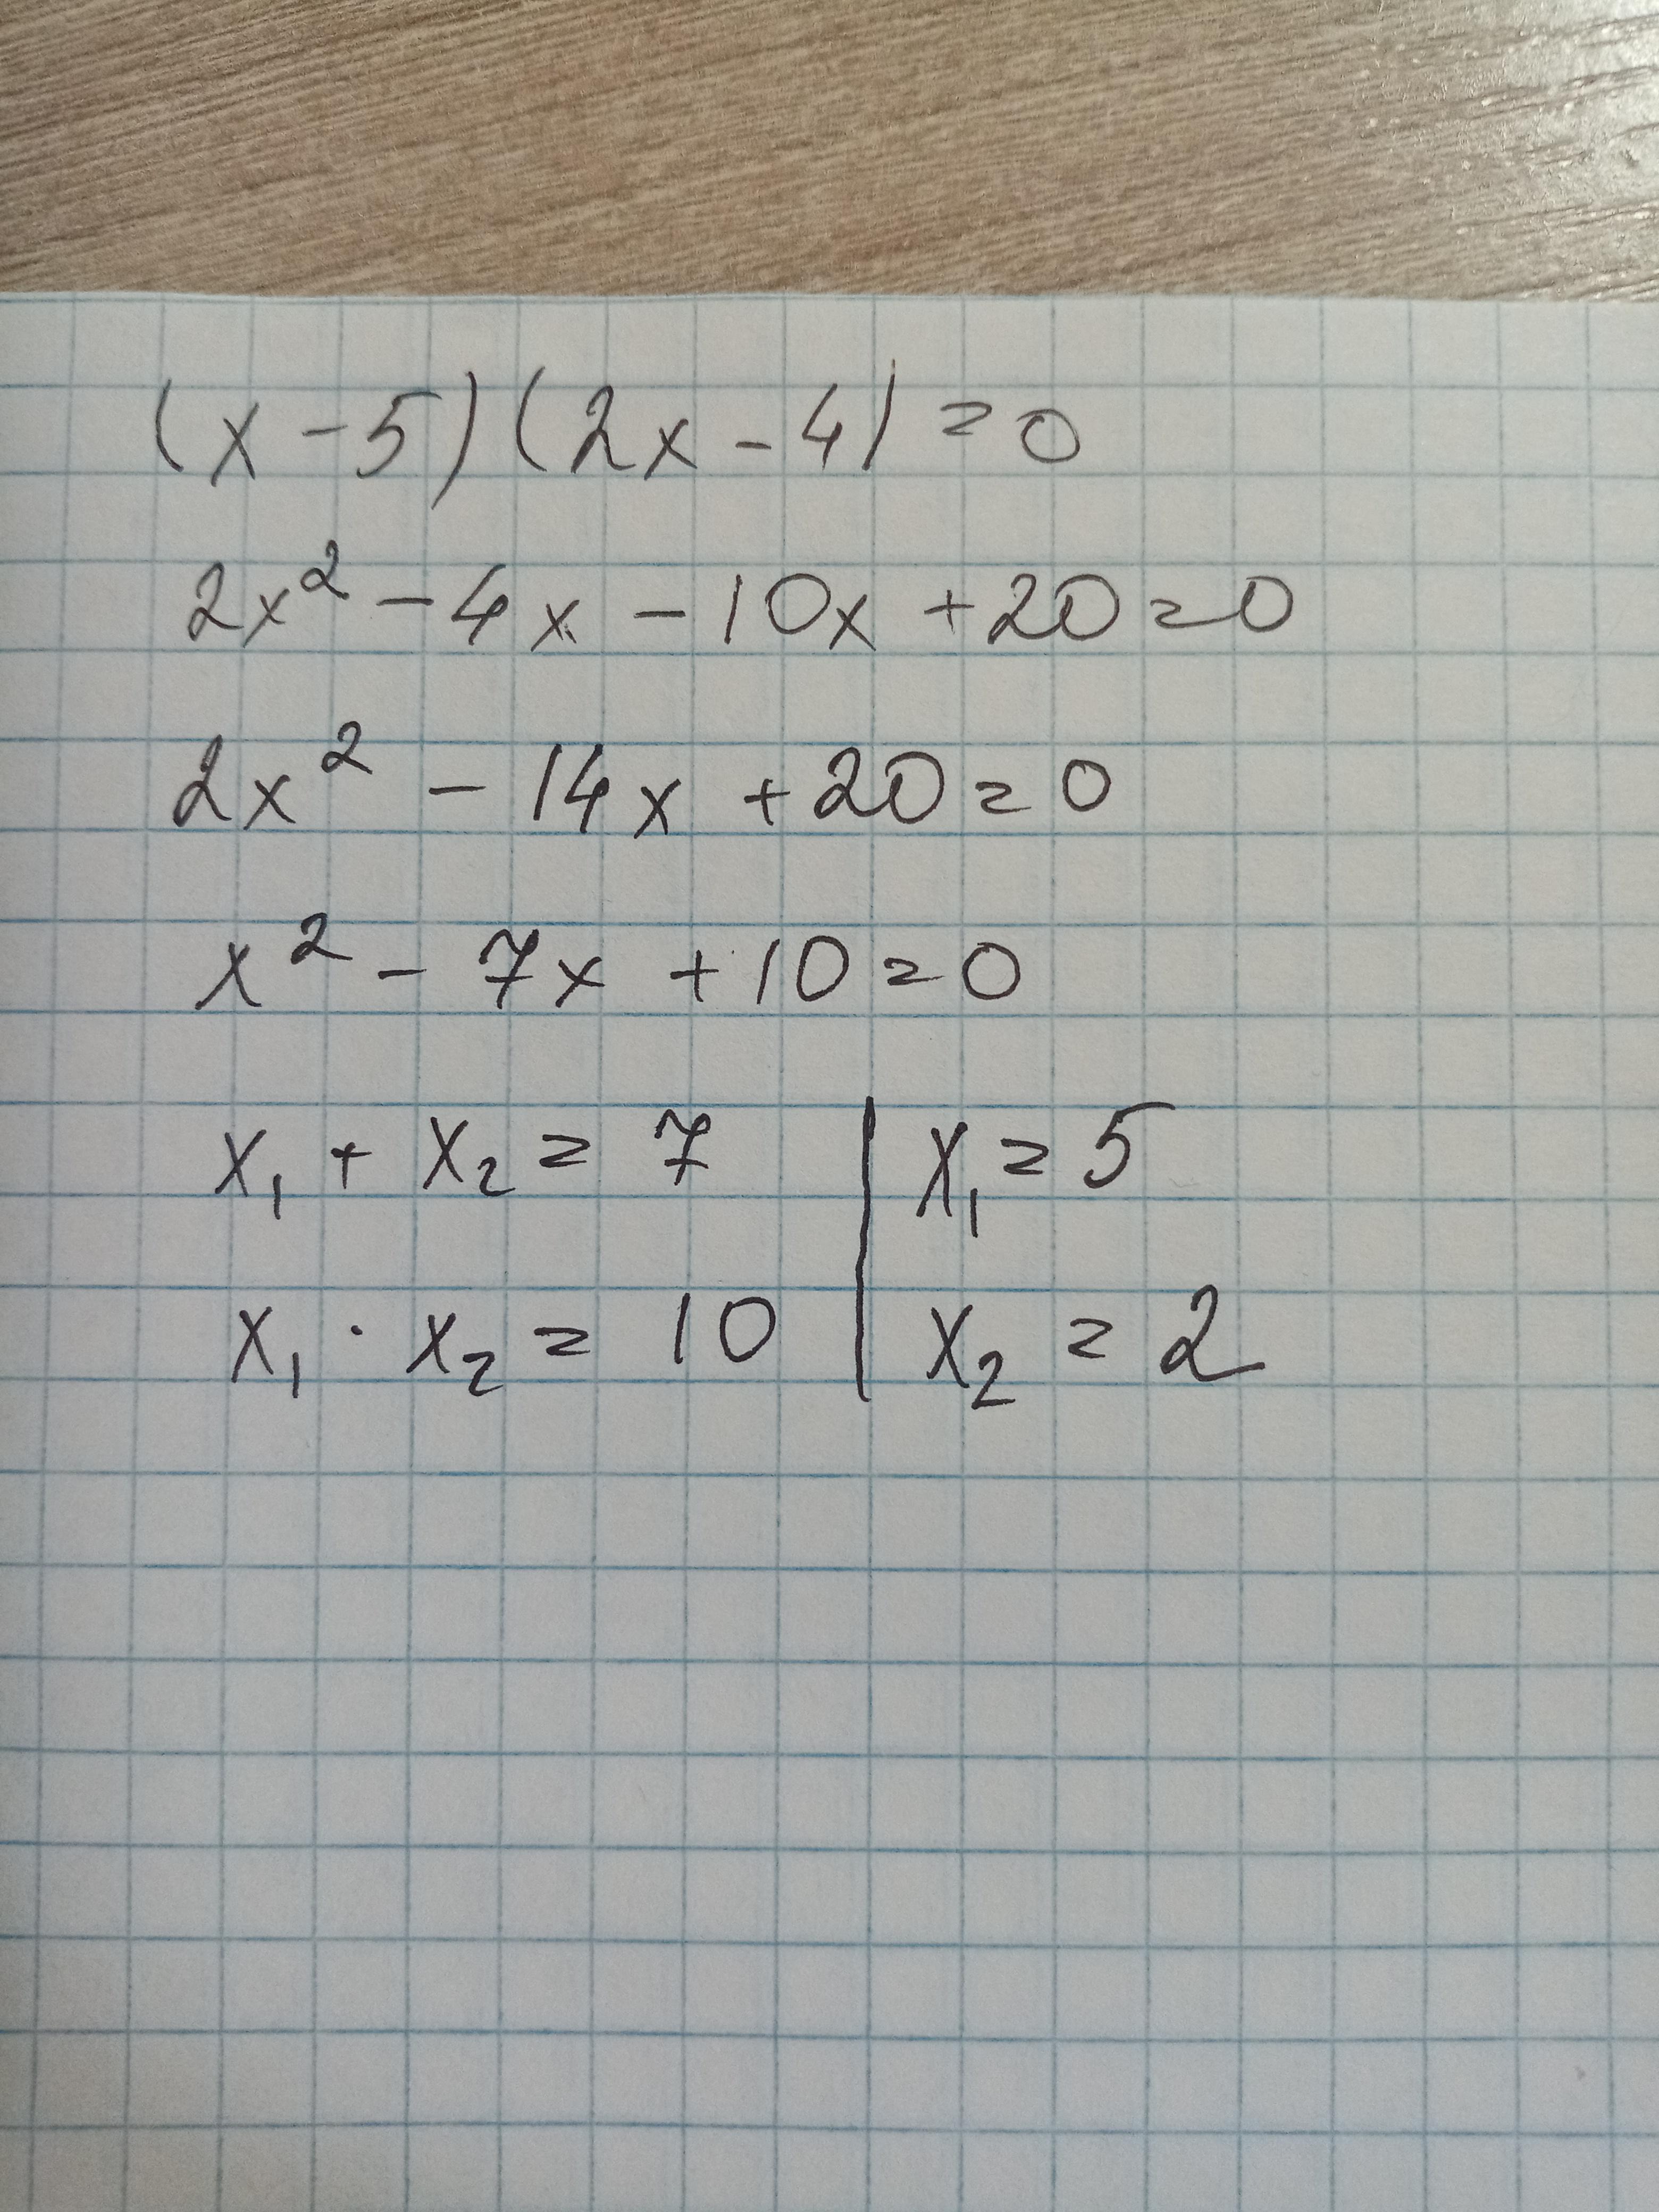 (x - 5)(2x - 4) = 0
2x² - 4x - 10x + 20 = 0
2x² - 14x + 20 = 0
x² - 7x + 10 = 0
x₁ + x₂ = 7 | x₁ = 5
x₁ · x₂ = 10 | x₂ = 2